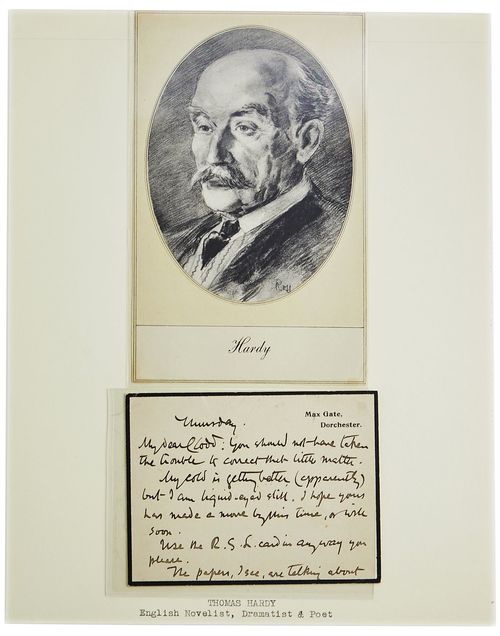 Ross
Hardy
Max Gate,
Dorchester.
Thursday.
My dear Clodd: You should not have taken
the trouble to correct that little matter.
My cold is getting better (apparently)
but I am liquid-eyed still. I hope yours
has made a move by this time, or will
soon.
Use the R. G. S. card in any way you
please.
The papers, I see, are talking about
THOMAS HARDY
English Novelist, Dramatist & Poet